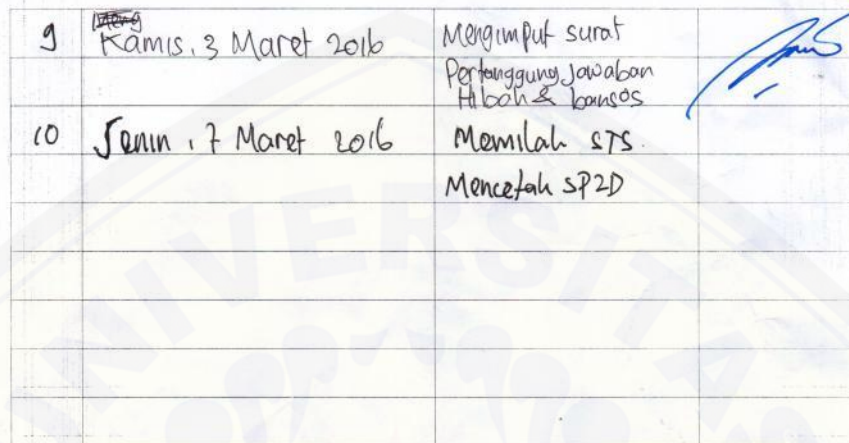 9 Kamis, 3 Maret 2016 Mengimput surat
Pertanggung jawaban
Hibah & bansos
10 Senin, 7 Maret 2016 Memilah STS.
Mencetak SP2D
UNIVERSITAS